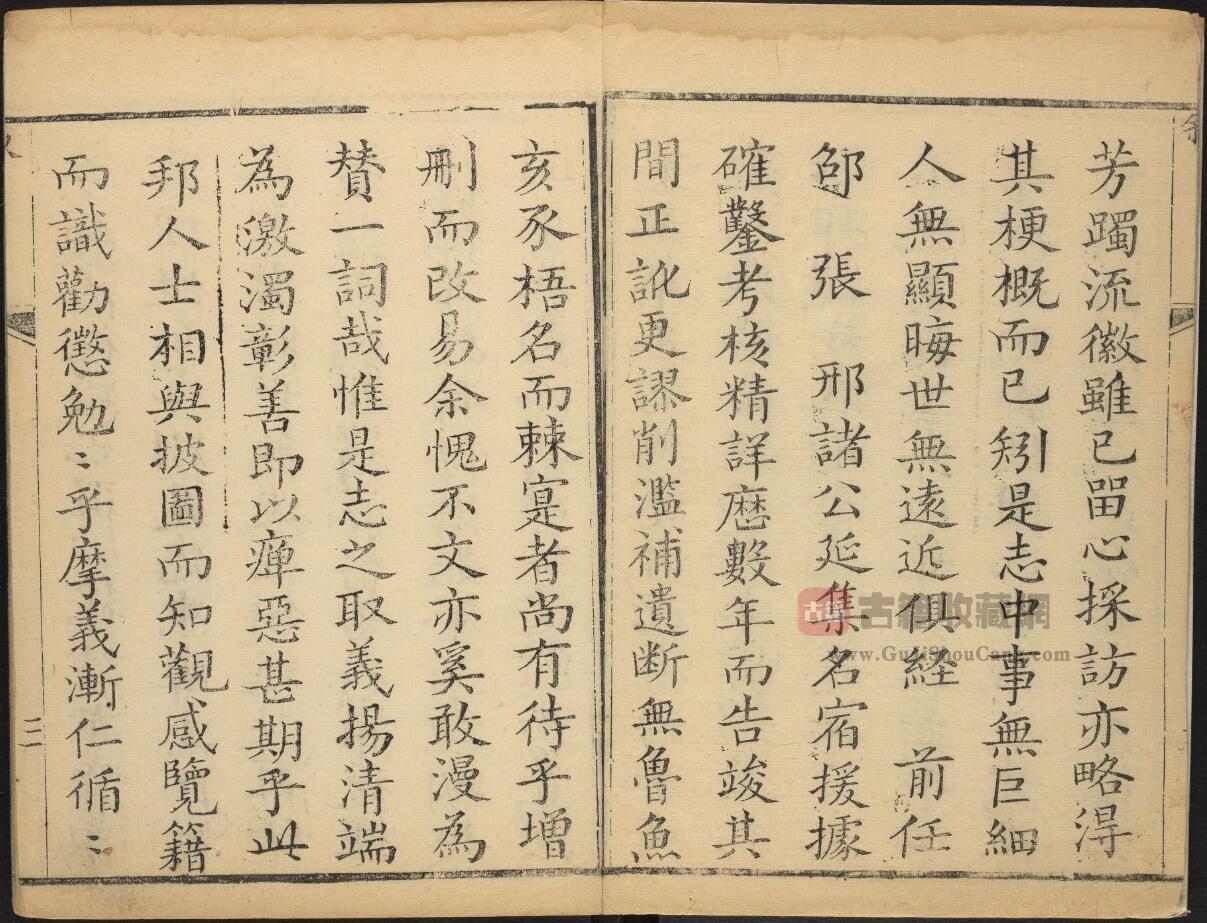 芳躅流徽雖已畱心採訪亦略得
其梗概而已矧是志中事無巨細
人無顯晦世無遠近俱経　前任
邵　張　邢諸公延集名宿援據
確鑿考核精詳厯數年而告竣其
間正訛更謬削濫補遺斷無魯魚
亥豕梧名而棘寔者尚有待乎增
刪而改易余愧不文亦奚敢漫為
賛一詞哉惟是志之取義揚清端
為激濁彰善即以癉惡甚期乎此
邦人士相與披圖而知觀感覽籍
而識勸懲勉〻乎摩義漸仁循〻
二
古籍收藏網
www.GujiShouCang.com